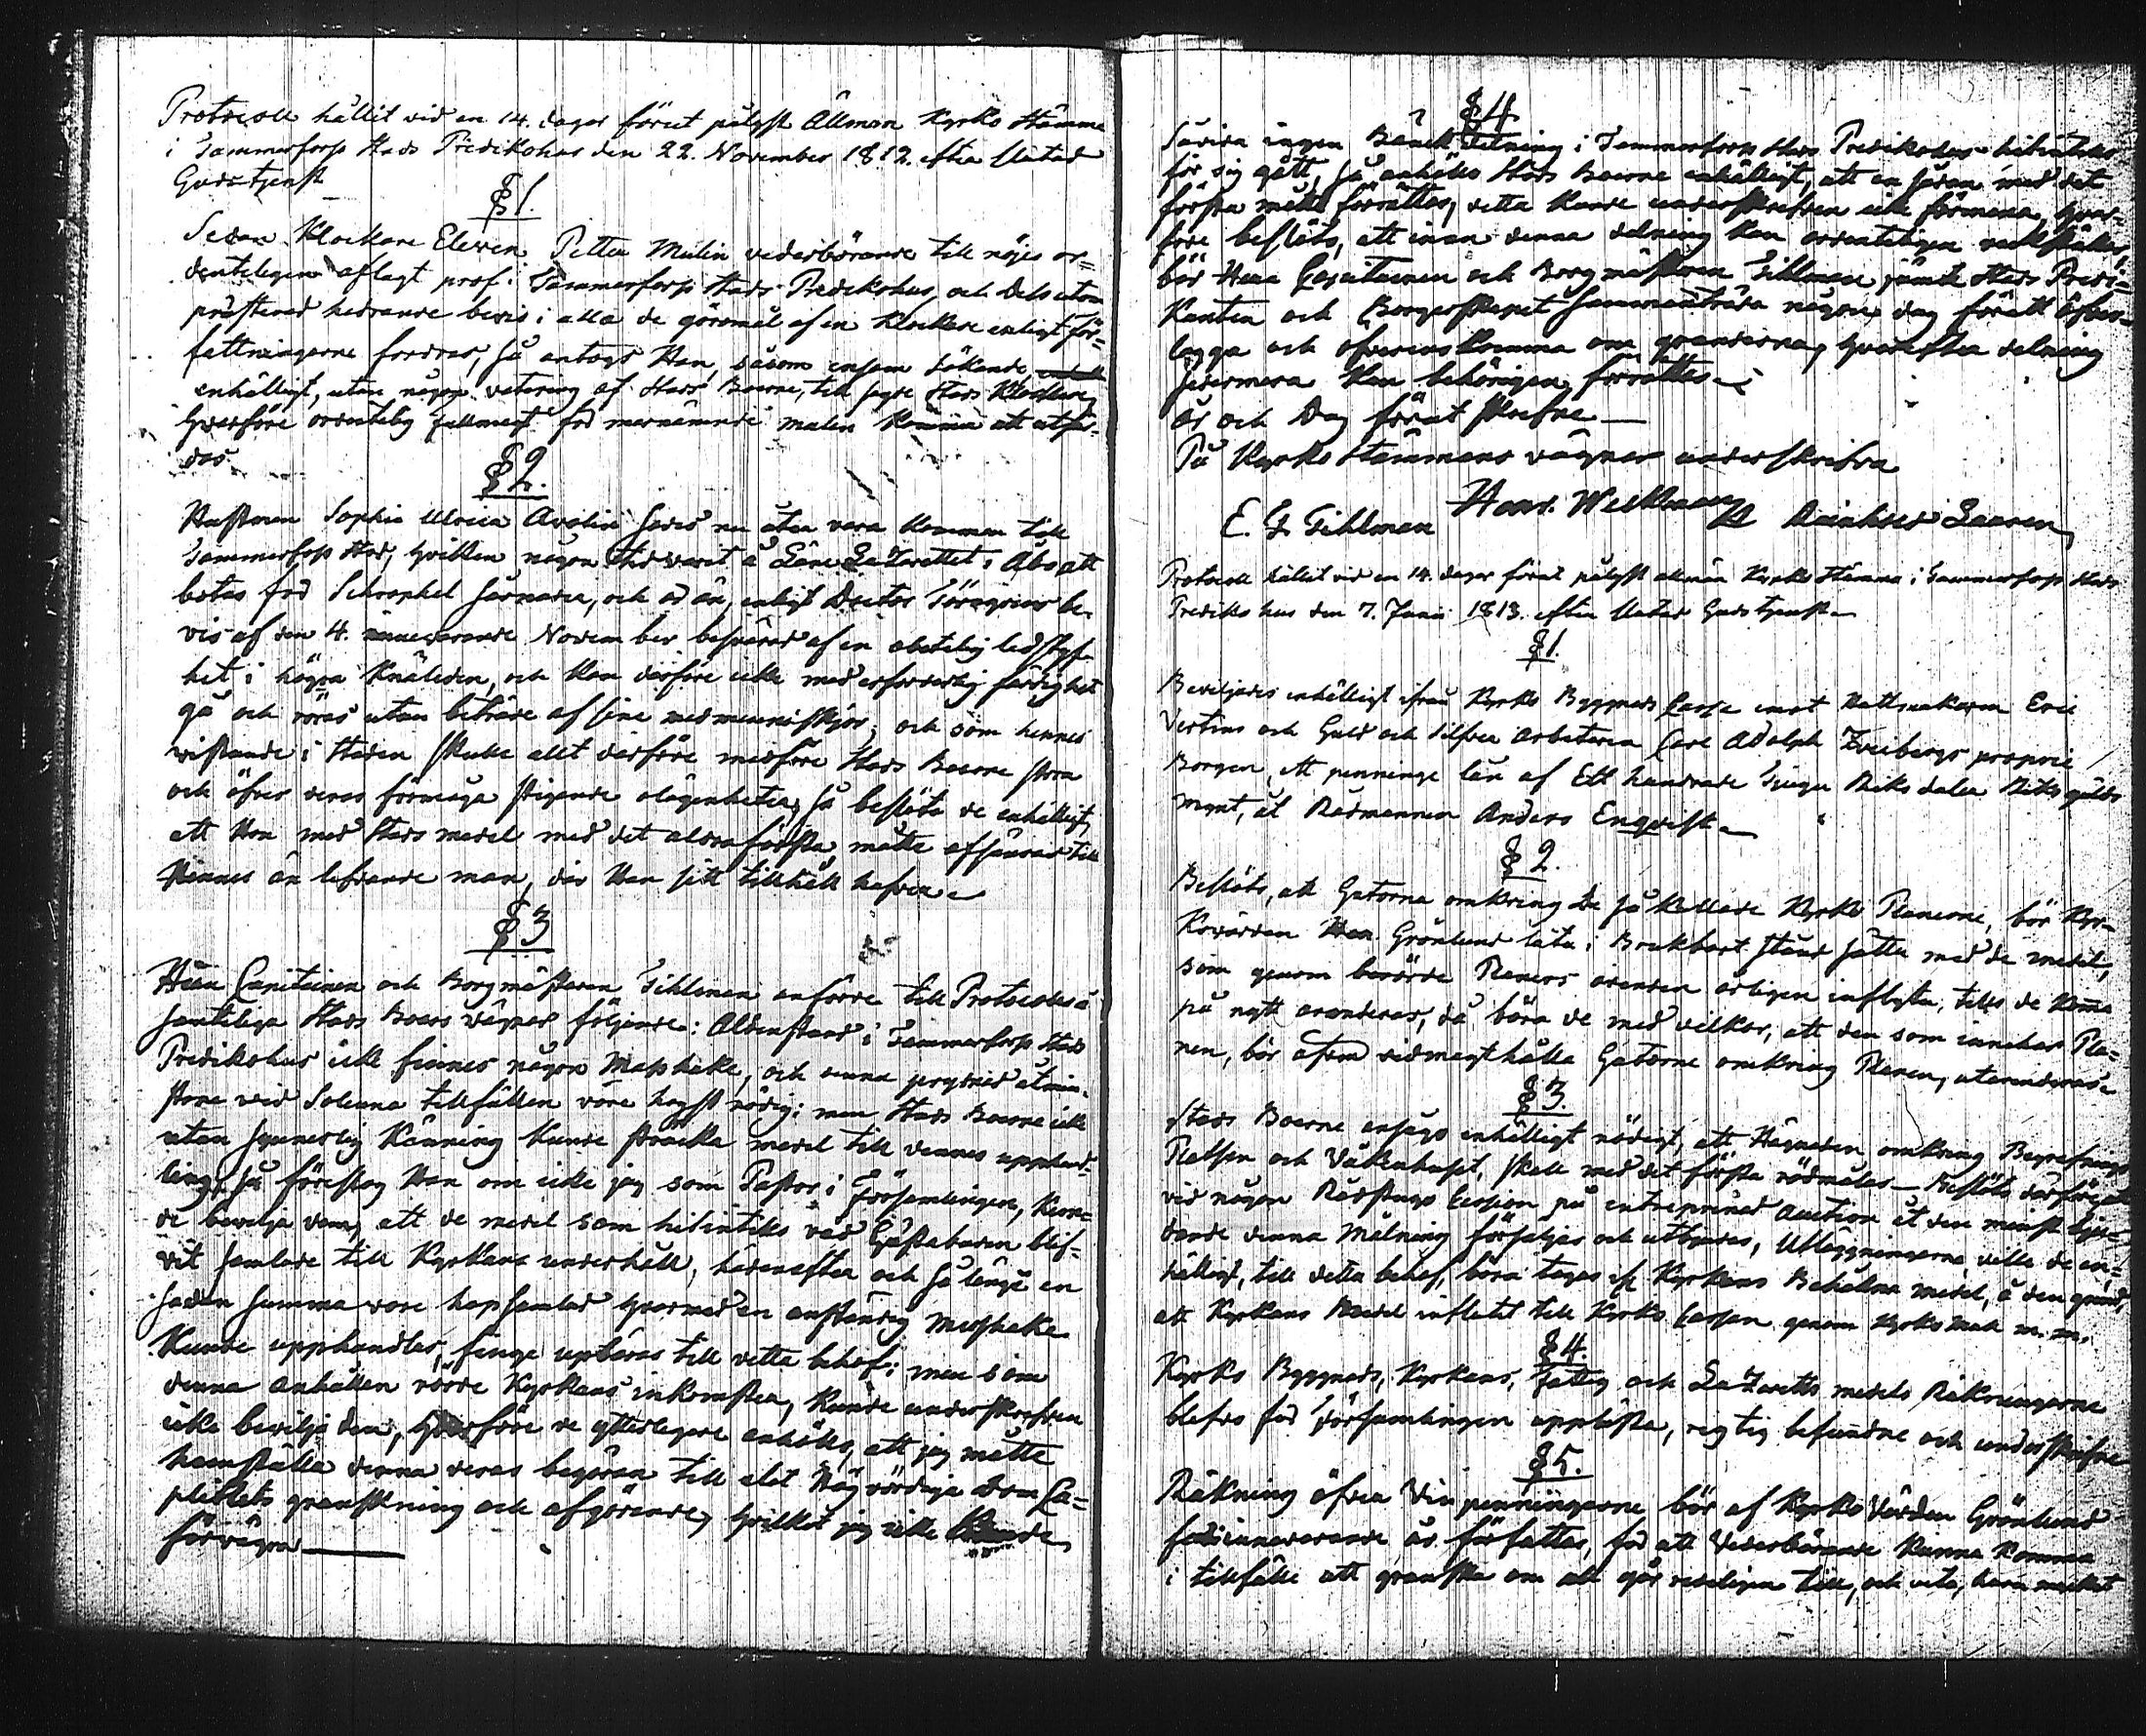 Protocoll hållit vid en 14. dagar förut pålyst Allmän Kyrko Stämma
i Tammerfors Stads Predikohus den 22. November 1812. efter slutad
Gudstjenst
§ 1.
Sedan Klockare Eleven Petter Malin vederbörande till nöjes or=
denteligen aflagt prof i Tammerfors Stads Predikohus, och dels utom
præsterad hedrande bevis i alla de göromål af en Klockare enligt för=
fattningarne fordras, så antogs Han, såsom ensam sökande
enhälligt, utan någon votering af Stads Boerne, till sagde Stads Klockare,
hvarföre ordentelig fullmagt för mernämnde Malin komma att utfär=
das.
§ 2.
Hustrun Sophia Ulrica Avelin sades nu åter vara kommen till
Tammerfors Stad, hvilken någon tid varit å Läne Lazarettet i Åbo att
botas för Schrophel sårnader, och ar än, enligt Doctor be=
vis af den 4. innevarande November besvärad af en obotelig ledstyf=
het i högra Knäleden, och kan därföre icke med erforderlig färdighet
gå och röras utan biträde af sine medmenniskjor; och som hennes
vistande i Staden skulle allt därföre medföra Stads Boerne stora
och öfver deras förmåga stigande olägenheter, så beslöto de enhälligt,
att Hon med Stads medel med det aldraförsta måtte afsändas till
Hennes än lefvande man, där Han sitt tillhåll hafver.
§ 3
Herr Capitainen och Borgmästaren Tihlman anförde till Protocollet å
samtelige Stads Boers vägnar följande: Aldenstund i Tammerfors Stads
Predikohus icke finnes någon Mässhake, och denna prydnad åtmin=
stone vid Solenna tillfällen vore högst nödig; men Stads Boerne icke
utan synnerlig Känning kunde skaffa medel till dennes upphand=
ling, Så föreslog Han om icke jag som Pastor i Församlingen, kun=
de bevilja dem, att de medel som hitintils vid Gästabuden blif=
vit samlade till Kyrkans underhåll, hädanefter och så länge en
sådan summa vore hopsamlad hvarmed en anständig Mässhake
Kunde upphandlas, finge upbäras till detta behof; men som
denna anhållan rörde Kyrkans inkomster, kunde underskrefven
icke bevilja den, hvarföre de ytterligare anhöllo, att jag måtte
hemställa denna deras begäran till det Högvördiga Dom Ca=
pitlets granskning och afgörande, hvilket jag icke kunde
förvägra
§ 4.
Såvida ingen Bänk delning i Tammerfors Stads Predikohus hitintills
för sig gått, så anhöllo Stads Boerne enhälligt, att en sådan med det
första måtte förrättas, detta kunde underskrefven icke förmena, hvar=
före beslöts, att innan denna delning kan ordenteligen verkställas,
bör Herr Capitainen och Borgmästaren Tihlman jämte Stads Predi=
kanten och Borgerskapet sammanträda någon dag förutt öfver=
lägga och öfverenskomma om grunderna, hvarefter delning
sedermera kan behörigen förrättas.
År och Dag förut skrefne
På Kyrko Stämmans vägnar underskrifva
E. G. Tihlman
Protocoll hållit vid en 14. dagar förut pålyst allmän Kyrko Stämma i Tammerfors Stads
Predikohus den 7. Junii 1813. efter slutad Gudstjenst
§ 1.
Beviljades enhälligt ifrån Kyrko Byggnads Cassa emot Hattmakaren Eric
Vertins och Guld och Silfver Arbetaren Carl Adolph propria
Borgen, ett penninge lån af Ett hundrade Tjugu Riksdaler Riksgälds
Mynt, åt Rådmannen Anders Enqvist
§ 2.
Beslöts, att Gatorna omkring de så Kallade Kyrko Planerne, bör Kyr=
kovärden Herr Grönlund låta i Brukbart stånd sätta med de medel,
som genom berörde Planers arenden årligen inflyta, tills de komma
på nytt arenderas, då böra de med vilkor, att den som innehar Pla=
nen, bör äfven vidmagthålla Gatorne omkring Planen, utarenderas
§ 3.
Stads Boerne ansågo enhälligt nödigt, att Hägnaden omkring Begrafnings
Platsen och Vakenhuset, skall med det första rödmålas — Beslöts därföre att
vid någon Rådstugu Session på entreprenad auction åt den minst bju=
dande denna Målning försäljas och utbjudas, Utläggningarna ville de en=
hälligt, till detta behof, böra tages af Kyrkans Behållna medel, å den grund,
att Kyrkans Medel influtit till Kyrko Cassan genom Kyrko mål m. m.
§ 4.
Kyrko Byggnads, Kyrkans, Fattig och Lazaretts medels Räkningarne
blefvo för Församlingen uppläste, rigtig befundne och underskrifne
§ 5.
Räkning öfver Vin penningarne bör af Kyrko Värden Grönlund
för innevarande år författas, för att Vederbörande kunna komma
i tillfälle att granska om allt går redeligen till, och veta, huru mycket